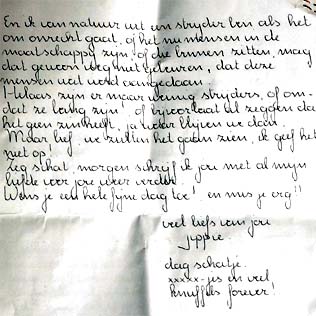 En ik van natuur uit een stryder ben als het
om onrecht gaat, of het nu mensen in de
maatschappy zyn, of die binnen zitten, mag
dat gewoon nog niet gebeuren, dat deze
mensen wat word aangedaan.
Helaas, zyn er maar weinig stryders, of om-
dat ze bang zyn, of byvoorbaat al zeggen dat
het geen zin heeft, ja waar blyven we dan.
Maar lief, we zullen het gaan zien, ik geef het
niet op!
Zeg schat, morgen schryf ik jou met al myn
liefde voor jou weer verder.
Wens je een hele fyne dag toe! en mis je erg!!
veel liefs van jou
Jippie.
dag schatje.
xxxxx-jes en veel
knuffels forever!